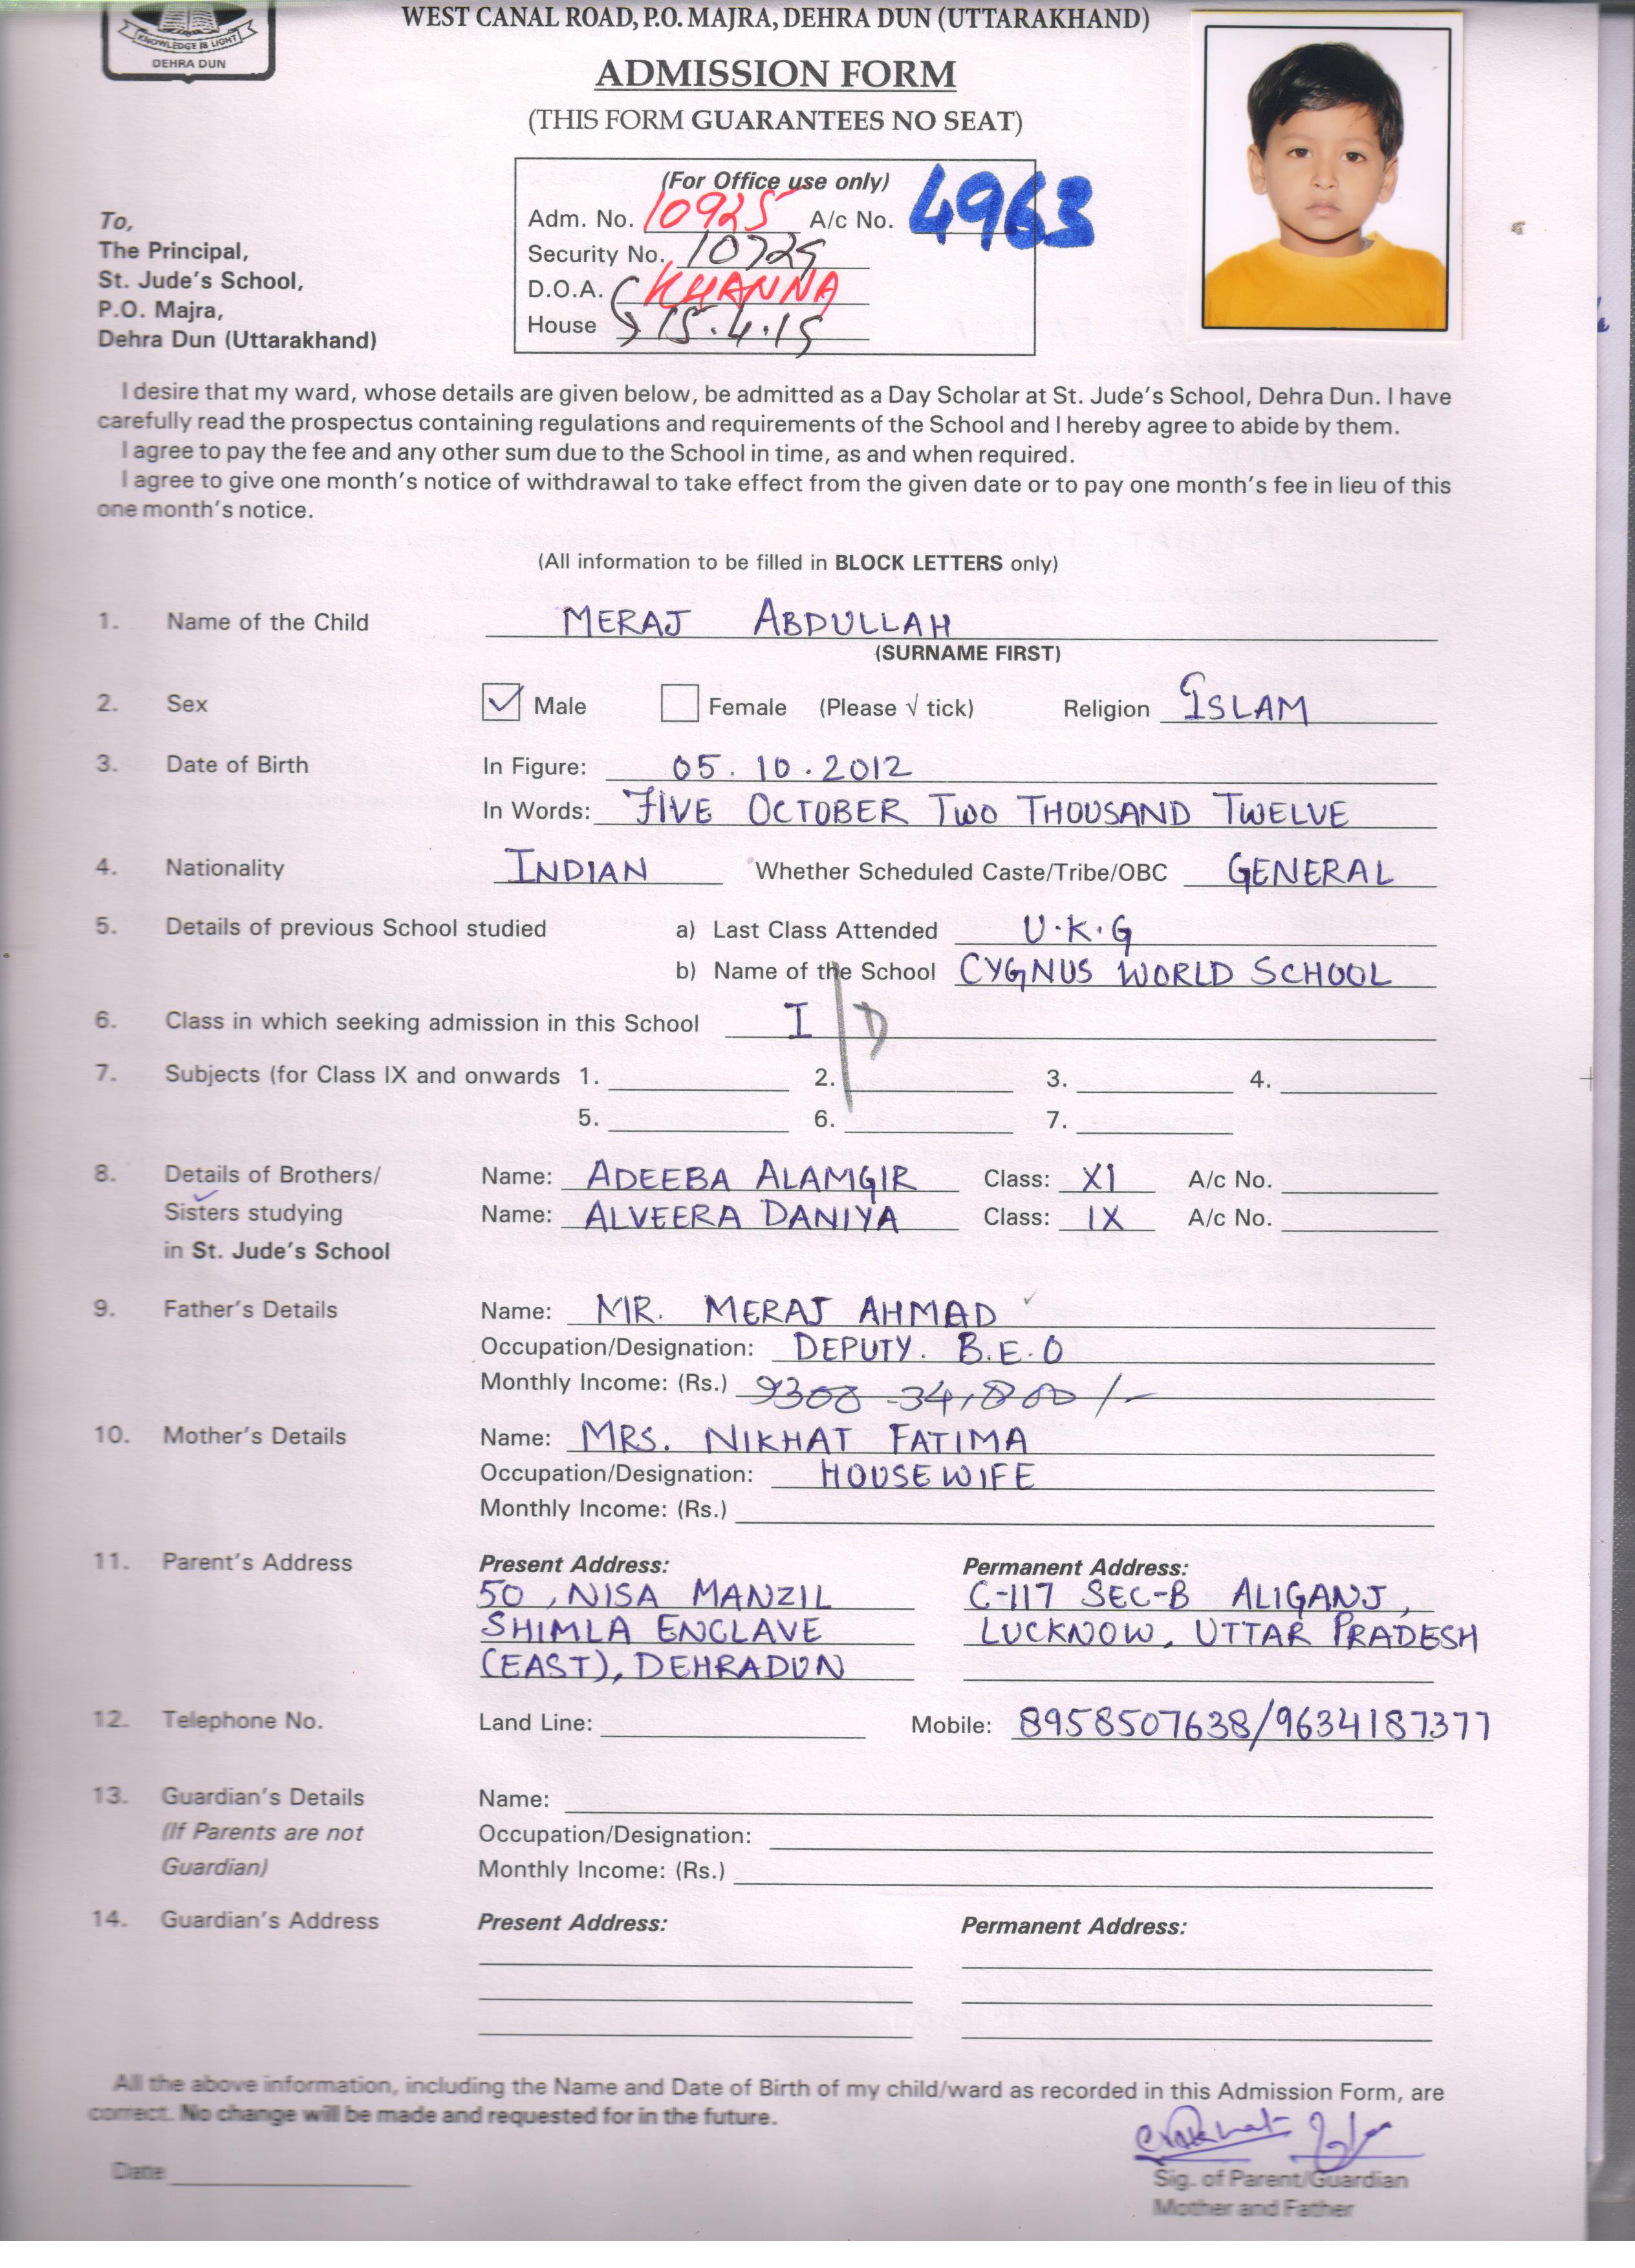 KNOWLEDGE IS LIGHT
DEHRA DUN
WEST CANAL ROAD, P.O. MAJRA, DEHRA DUN (UTTARAKHAND)
ADMISSION FORM
(THIS FORM GUARANTEES NO SEAT)
(For Office use only)
Adm. No. 10925 A/c No. 4963
Security No. 10725
D.O.A. KHANNA
House 15.4.15
To,
The Principal,
St. Jude's School,
P.O. Majra,
Dehra Dun (Uttarakhand)
I desire that my ward, whose details are given below, be admitted as a Day Scholar at St. Jude's School, Dehra Dun. I have
carefully read the prospectus containing regulations and requirements of the School and I hereby agree to abide by them.
I agree to pay the fee and any other sum due to the School in time, as and when required.
I agree to give one month's notice of withdrawal to take effect from the given date or to pay one month's fee in lieu of this
one month's notice.
(All information to be filled in BLOCK LETTERS only)
1. Name of the Child MERAJ ABDULLAH
(SURNAME FIRST)
2. Sex Male Female (Please √ tick) Religion ISLAM
3. Date of Birth In Figure: 05.10.2012
In Words: FIVE OCTOBER TWO THOUSAND TWELVE
4. Nationality INDIAN Whether Scheduled Caste/Tribe/OBC GENERAL
5. Details of previous School studied a) Last Class Attended U.K.G
b) Name of the School CYGNUS WORLD SCHOOL
6. Class in which seeking admission in this School I / D
7. Subjects (for Class IX and onwards 1. 2. 3. 4.
5. 6. 7.
8. Details of Brothers/ Name: ADEEBA ALAMGIR Class: XI A/c No.
Sisters studying Name: ALVEERA DANIYA Class: IX A/c No.
in St. Jude's School
9. Father's Details Name: MR. MERAJ AHMAD
Occupation/Designation: DEPUTY. B.E.O
Monthly Income: (Rs.) 9300-34,800/-
10. Mother's Details Name: MRS. NIKHAT FATIMA
Occupation/Designation: HOUSEWIFE
Monthly Income: (Rs.)
11. Parent's Address Present Address: Permanent Address:
50, NISA MANZIL C-117 SEC-B ALIGANJ,
SHIMLA ENCLAVE LUCKNOW, UTTAR PRADESH
(EAST), DEHRADUN
12. Telephone No. Land Line: Mobile: 8958507638/9634187377
13. Guardian's Details Name:
(If Parents are not Occupation/Designation:
Guardian) Monthly Income: (Rs.)
14. Guardian's Address Present Address: Permanent Address:
All the above information, including the Name and Date of Birth of my child/ward as recorded in this Admission Form, are
correct. No change will be made and requested for in the future.
Date
Sig. of Parent/Guardian
Mother and Father